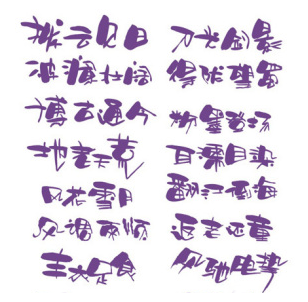 拨云见日
波澜壮阔
博古通今
地老天荒
风花雪月
风调雨顺
丰衣足食
刀光剑影
得陇望蜀
粉墨登场
耳濡目染
翻江倒海
返老还童
风驰电掣